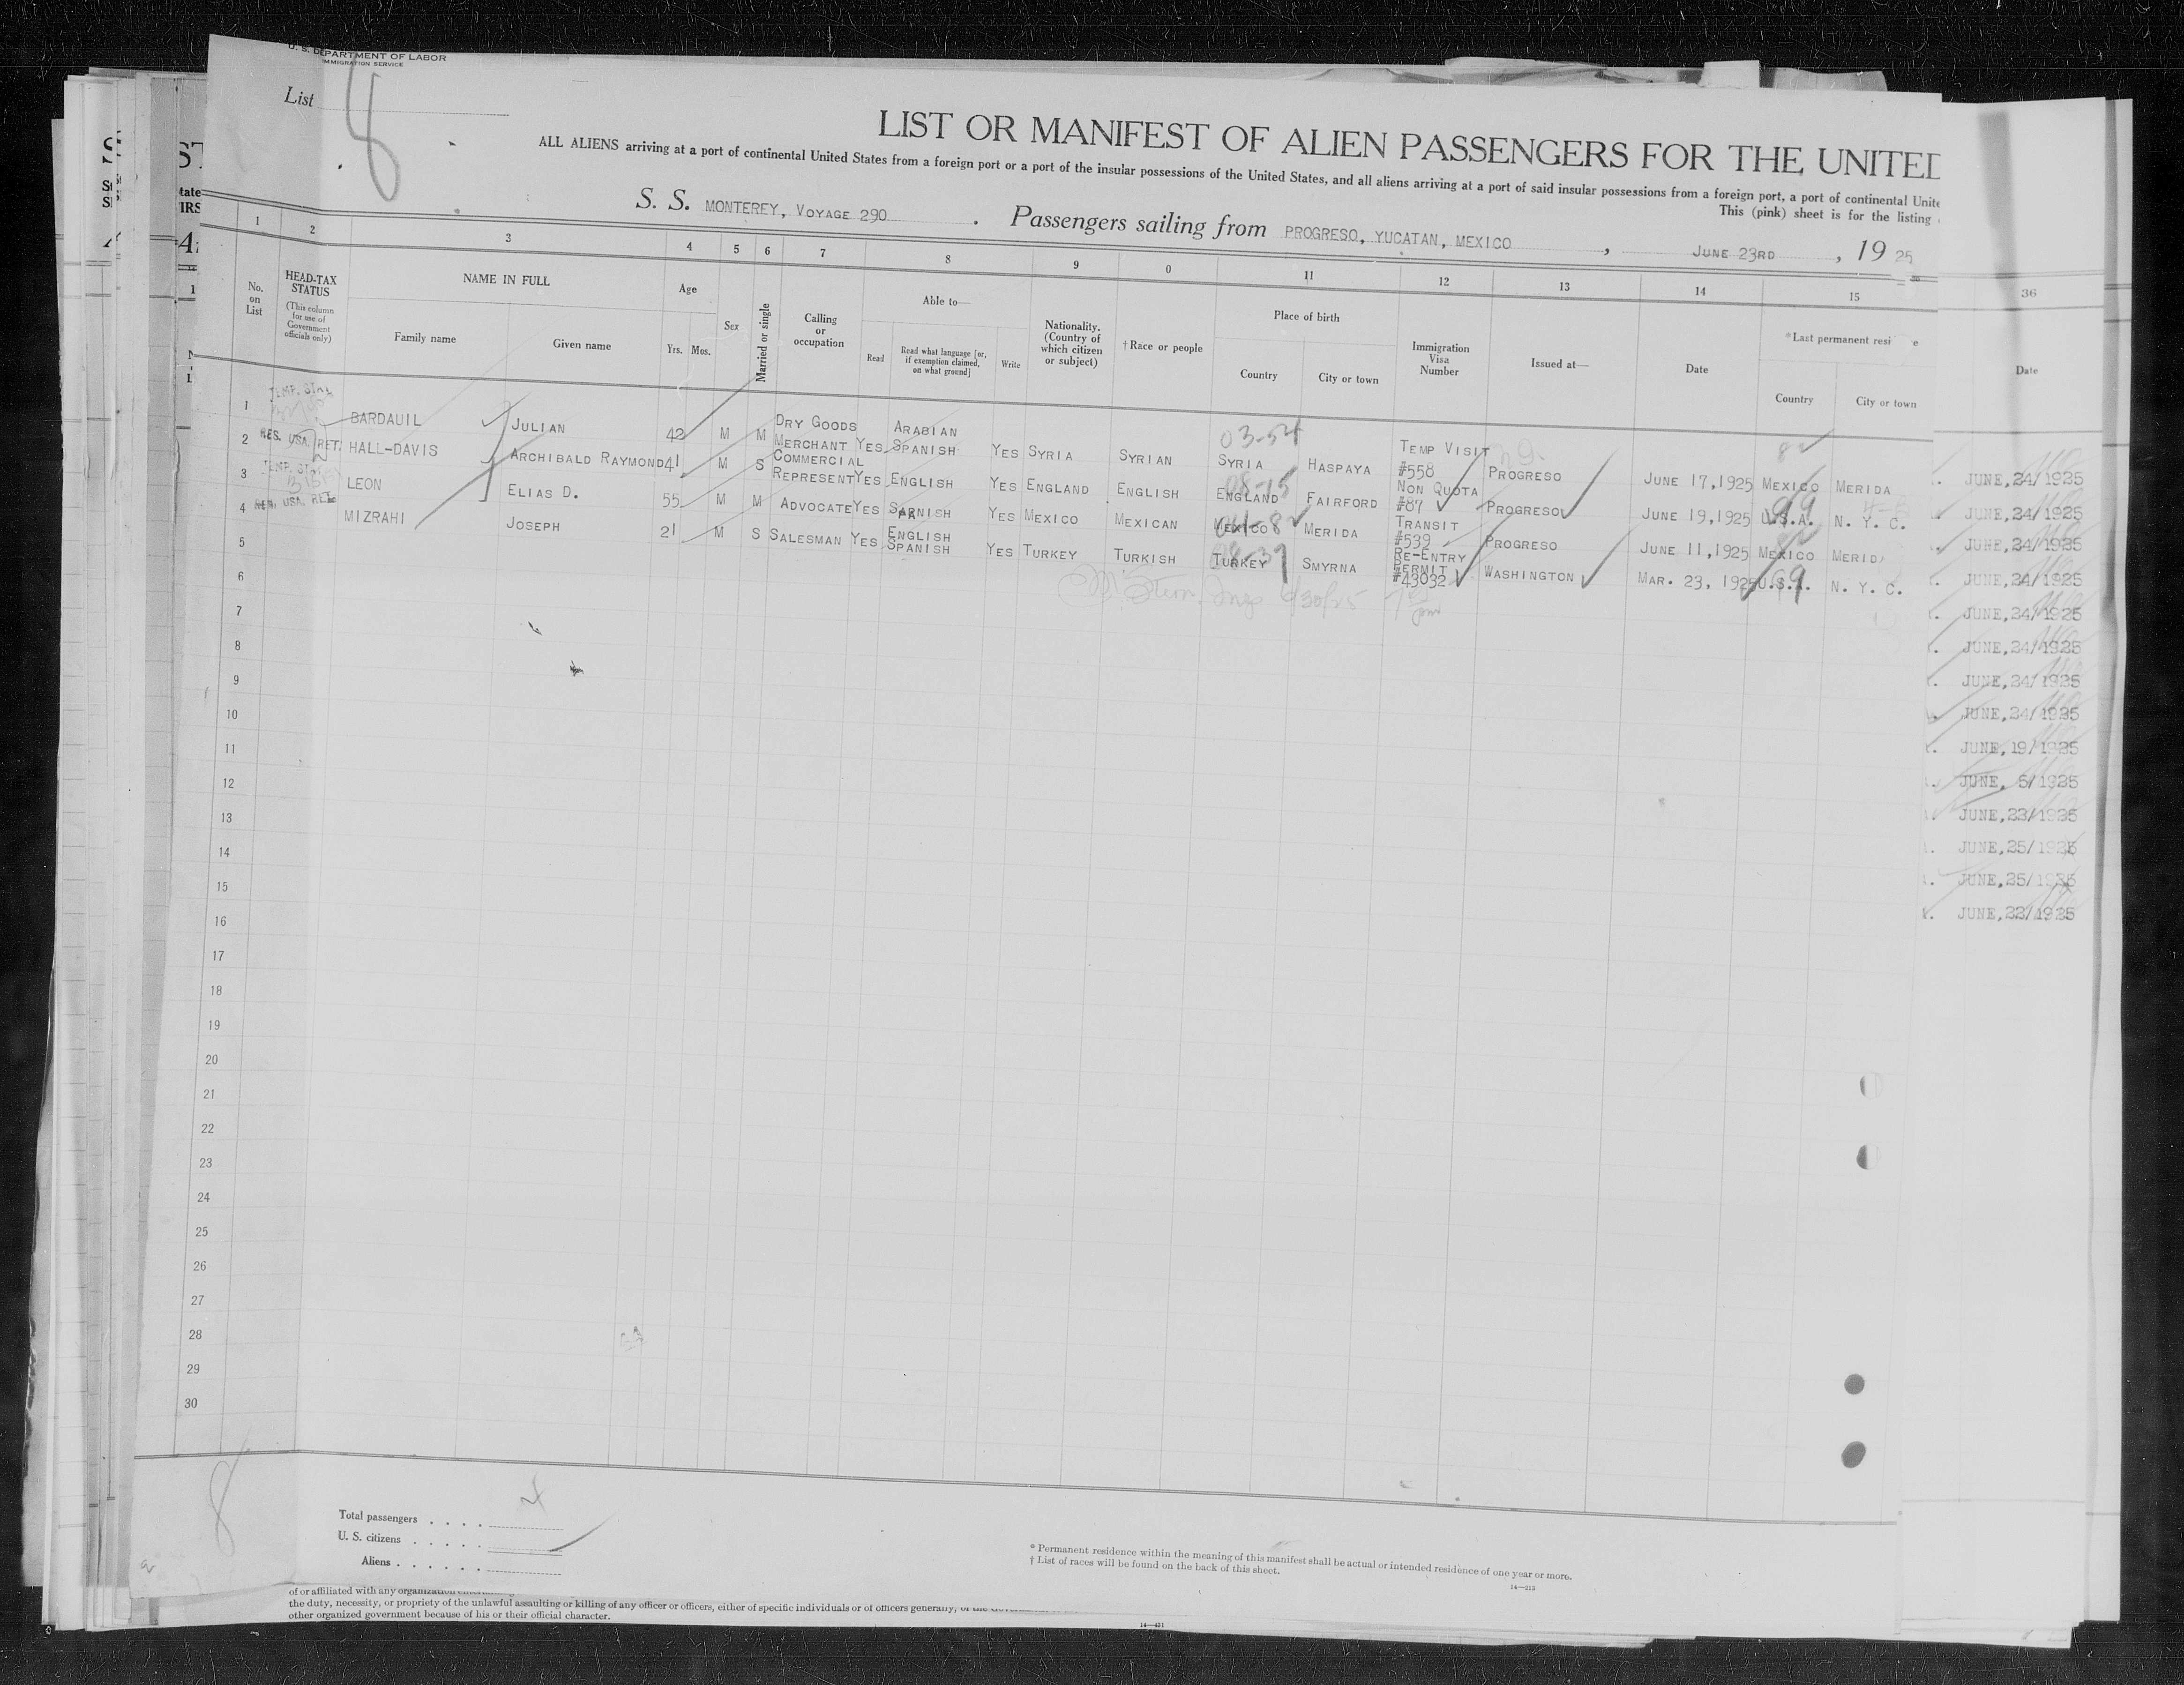 U. S. DEPARTMENT OF LABOR
IMMIGRATION SERVICE
List 8
LIST OR MANIFEST OF ALIEN PASSENGERS FOR THE UNITED
ALL ALIENS arriving at a port of continental United States from a foreign port or a port of the insular possessions of the United States, and all aliens arriving at a port of said insular possessions from a foreign port, a port of continental Unite
This (pink) sheet is for the listing
S. S. MONTEREY, VOYAGE 290. Passengers sailing from PROGRESO, YUCATAN, MEXICO, JUNE 23RD, 19 25
1 2 3 4 5 6 7 8 9 0 11 12 13 14 15 36
No. on List
HEAD-TAX STATUS
(This column for use of Government officials only)
NAME IN FULL
Family name Given name
Age
Yrs. Mos.
Sex
Married or single
Calling or occupation
Able to—
Read
Read what language [or, if exemption claimed, on what ground]
Write
Nationality. (Country of which citizen or subject)
†Race or people
Place of birth
Country City or town
Immigration Visa Number
Issued at—
Date
*Last permanent resi e
Country City or town
Date
1 TEMP. BARDAUIL JULIAN 42 M M DRY GOODS MERCHANT YES ARABIAN SPANISH YES SYRIA SYRIAN 03-54 SYRIA HASPAYA TEMP VISIT #558 PROGRESO JUNE 17,1925 MEXICO MERIDA
2 RES. USA. RET. HALL-DAVIS ARCHIBALD RAYMOND 41 M S COMMERCIAL REPRESENT YES ENGLISH YES ENGLAND ENGLISH ENGLAND FAIRFORD NON QUOTA #87 PROGRESO JUNE 19,1925 U.S.A. N. Y. C.
3 TEMP. LEON ELIAS D. 55 M M ADVOCATE YES SARNISH PA YES MEXICO MEXICAN MEXICO MERIDA TRANSIT #539 PROGRESO JUNE 11,1925 MEXICO MERIDA
4 RES. USA. RET. MIZRAHI JOSEPH 21 M S SALESMAN YES ENGLISH SPANISH YES TURKEY TURKISH TURKEY SMYRNA RE-ENTRY PERMIT #43032 WASHINGTON MAR. 23, 1925 U.S.A. N. Y. C.
6/30/25
5
6
7
8
9
10
11
12
13
14
15
16
17
18
19
20
21
22
23
24
25
26
27
28
29
30
JUNE,24/1925
JUNE,24/1925
JUNE,24/1925
JUNE,24/1925
JUNE,24/1925
JUNE,24/1925
JUNE,24/1925
JUNE,24/1925
JUNE,19/1925
JUNE, 5/1925
JUNE,23/1925
JUNE,25/1925
JUNE,25/1925
JUNE,22/1925
8
Total passengers . . . . 4
U. S. citizens . . . . .
Aliens . . . . . .
* Permanent residence within the meaning of this manifest shall be actual or intended residence of one year or more.
† List of races will be found on the back of this sheet.
14—313
of or affiliated with any organization
the duty, necessity, or propriety of the unlawful assaulting or killing of any officer or officers, either of specific individuals or of officers generally,
other organized government because of his or their official character.
14—431